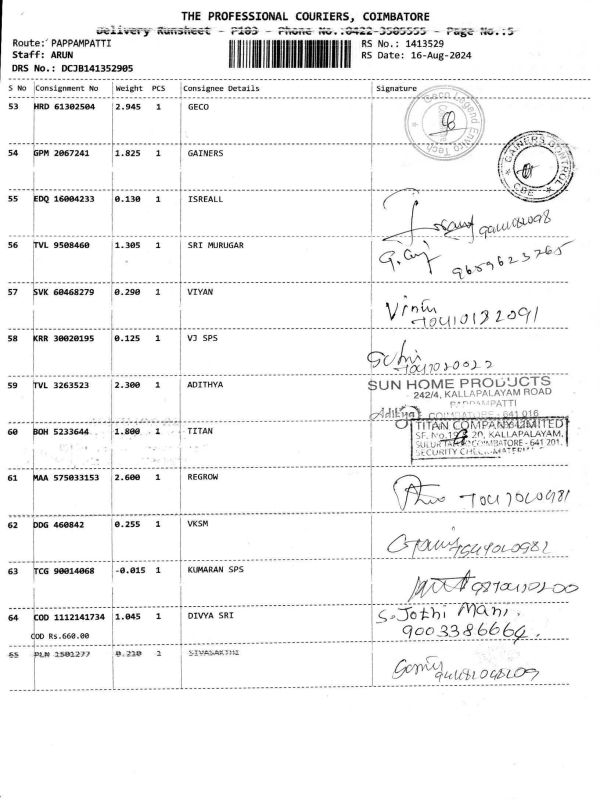 THE PROFESSIONAL COURIERS, COIMBATORE
Delivery Runsheet - P103 - Phone No.:0422-3505555 - Page No.:5
Route: PAPPAMPATTI RS No.: 1413529
Staff: ARUN RS Date: 16-Aug-2024
DRS No.: DCJB141352905
S No Consignment No Weight PCS Consignee Details Signature
53 HRD 61302504 2.945 1 GECO
Geco Legend Enviro Tech
54 GPM 2067241 1.825 1 GAINERS
GAINERS CONTROL CBE
55 EDQ 16004233 0.130 1 ISREALL
56 TVL 9508460 1.305 1 SRI MURUGAR
9659623765
57 SVK 60468279 0.290 1 VIYAN
58 KRR 30020195 0.125 1 VJ SPS
59 TVL 3263523 2.300 1 ADITHYA
SUN HOME PRODUCTS
242/4, KALLAPALAYAM ROAD
PAPPAMPATTI
Aditya COIMBATORE - 641 016
60 BOH 5233644 1.800 1 TITAN
TITAN COMPANY LIMITED
20, KALLAPALAYAM,
COIMBATORE - 641 201.
SECURITY CHECK
61 MAA 575033153 2.600 1 REGROW
62 DDG 460842 0.255 1 VKSM
63 TCG 90014068 -0.015 1 KUMARAN SPS
64 COD 1112141734 1.045 1 DIVYA SRI S. Jothi Mani.
COD Rs.660.00 9003386664.
65 PLN 1501277 0.210 1 SIVASAKTHI